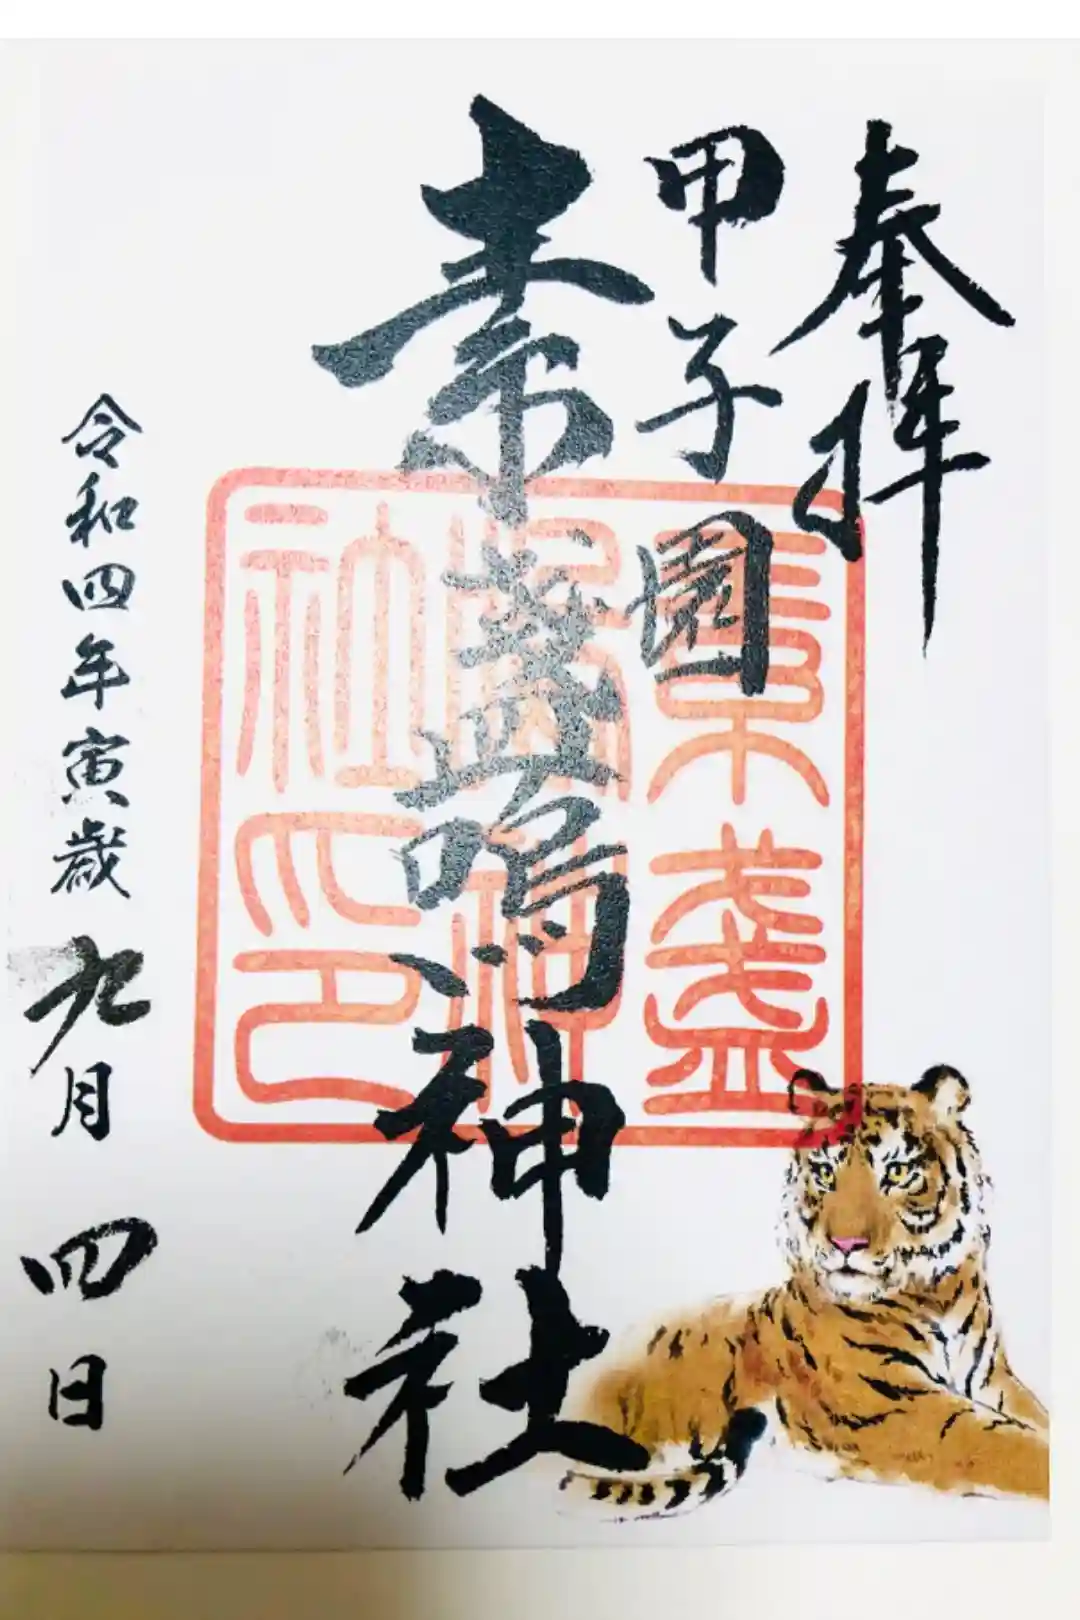 奉拝
甲子園
素盞嗚神社
素盞
嗚神
社印
令和四年寅歳九月四日